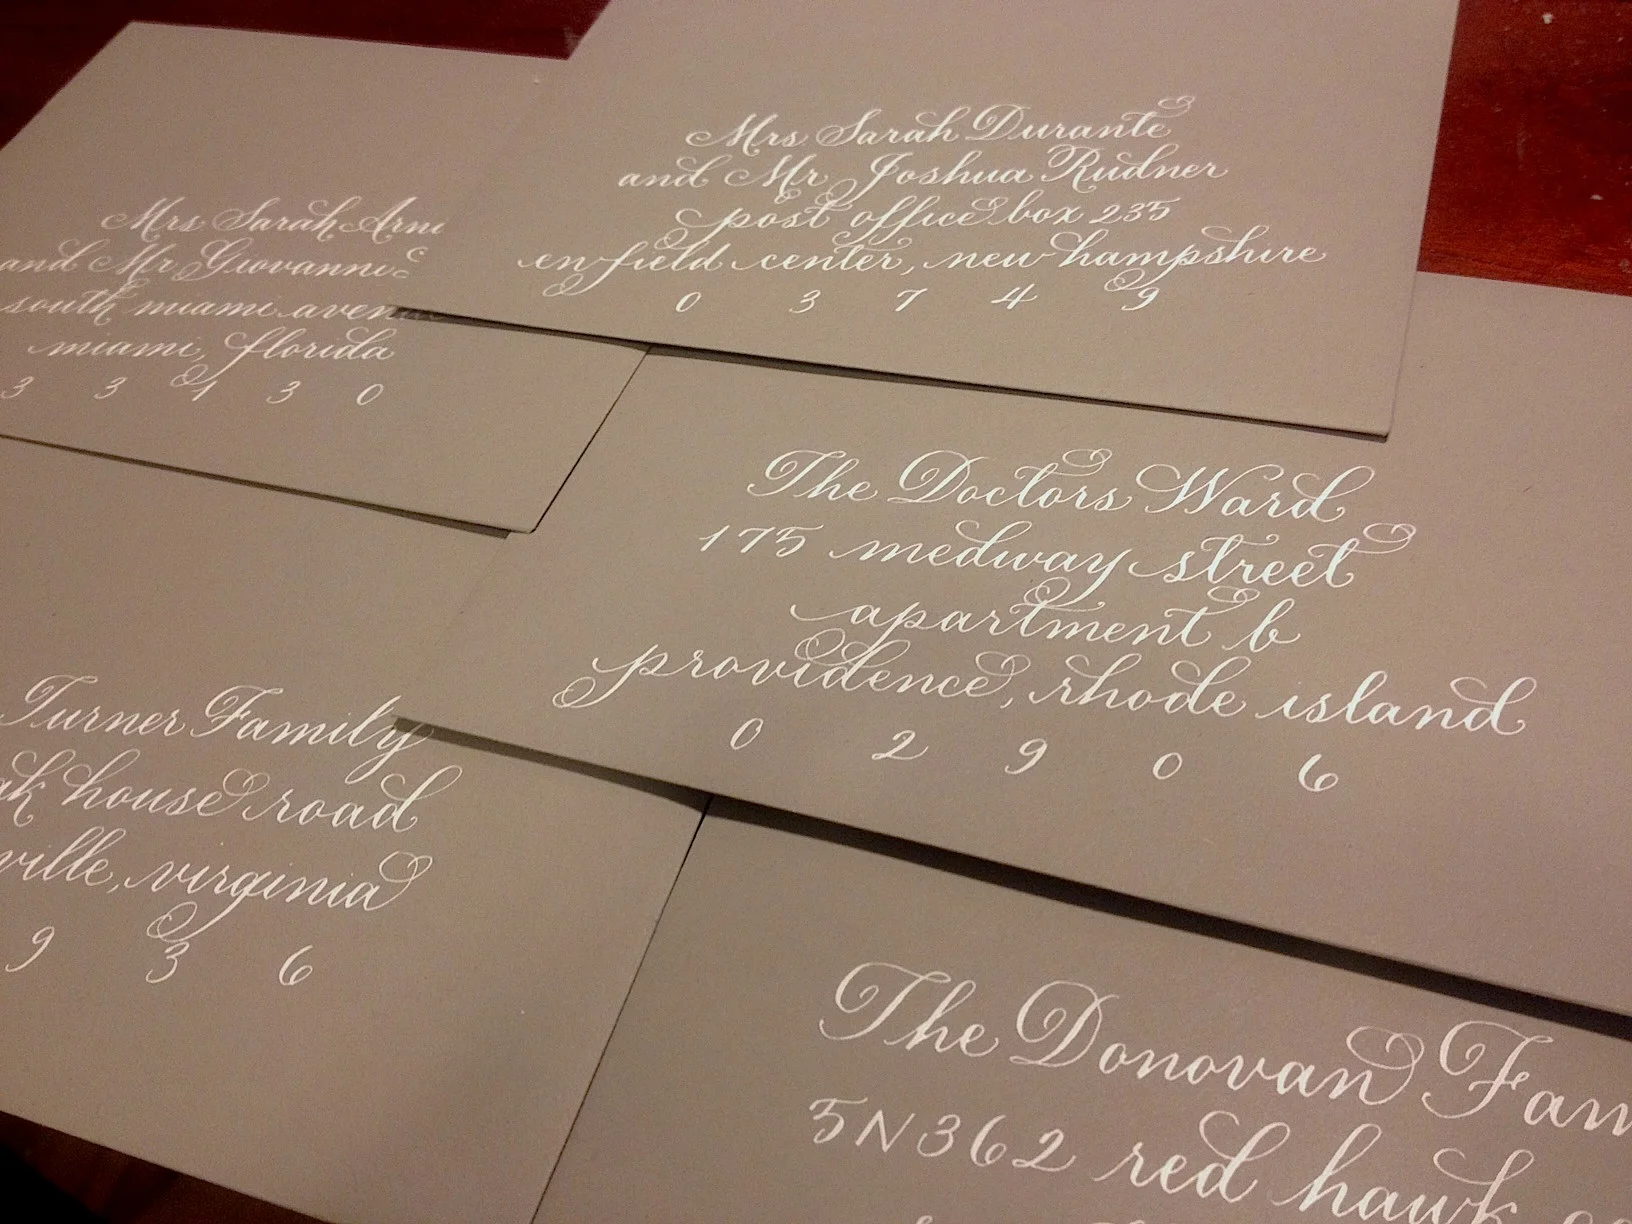 Mrs. Sarah Durante
and Mr. Joshua Rudner
post office box 235
enfield center, new hampshire
0 3 7 4 9
Mrs. Sarah
and Mr. Giovanni
south miami
miami, florida
3 3 1 3 0
The Doctors Ward
175 medway street
apartment b
providence, rhode island
0 2 9 0 6
Turner Family
house road
virginia
9 3 6
The Donovan
5N362 red hawk